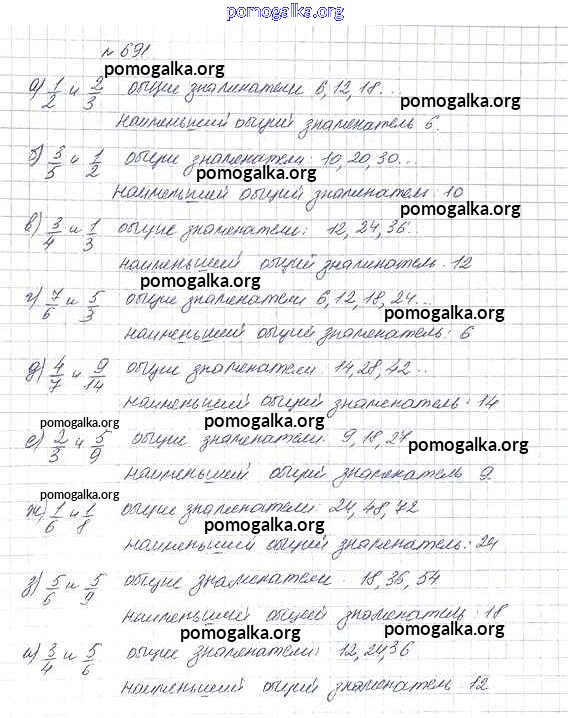 pomogalka.org
№ 691
pomogalka.org
а) 1/2 и 2/3 общие знаменатели 6, 12, 18...
pomogalka.org
наименьший общий знаменатель 6.
б) 3/5 и 1/2 общие знаменатели: 10, 20, 30...
pomogalka.org
наименьший общий знаменатель: 10
pomogalka.org
в) 3/4 и 1/3 общие знаменатели: 12, 24, 36...
наименьший общий знаменатель: 12
pomogalka.org
г) 7/6 и 5/3 общие знаменатели 6, 12, 18, 24...
pomogalka.org
наименьший общий знаменатель: 6
д) 4/7 и 9/14 общие знаменатели: 14, 28, 42...
наименьший общий знаменатель: 14
pomogalka.org
pomogalka.org
е) 2/3 и 5/9 общие знаменатели: 9, 18, 27
pomogalka.org
наименьшей общий знаменатель 9.
pomogalka.org
ж) 1/6 и 1/8 общие знаменатели: 24, 48, 72
pomogalka.org
наименьший общий знаменатель: 24
з) 5/6 и 5/9 общие знаменатели: 18, 36, 54
наименьший общей знаменатель: 18
pomogalka.org
pomogalka.org
и) 3/4 и 5/6 общие знаменатели: 12, 24, 36
наименьший общий знаменатель 12